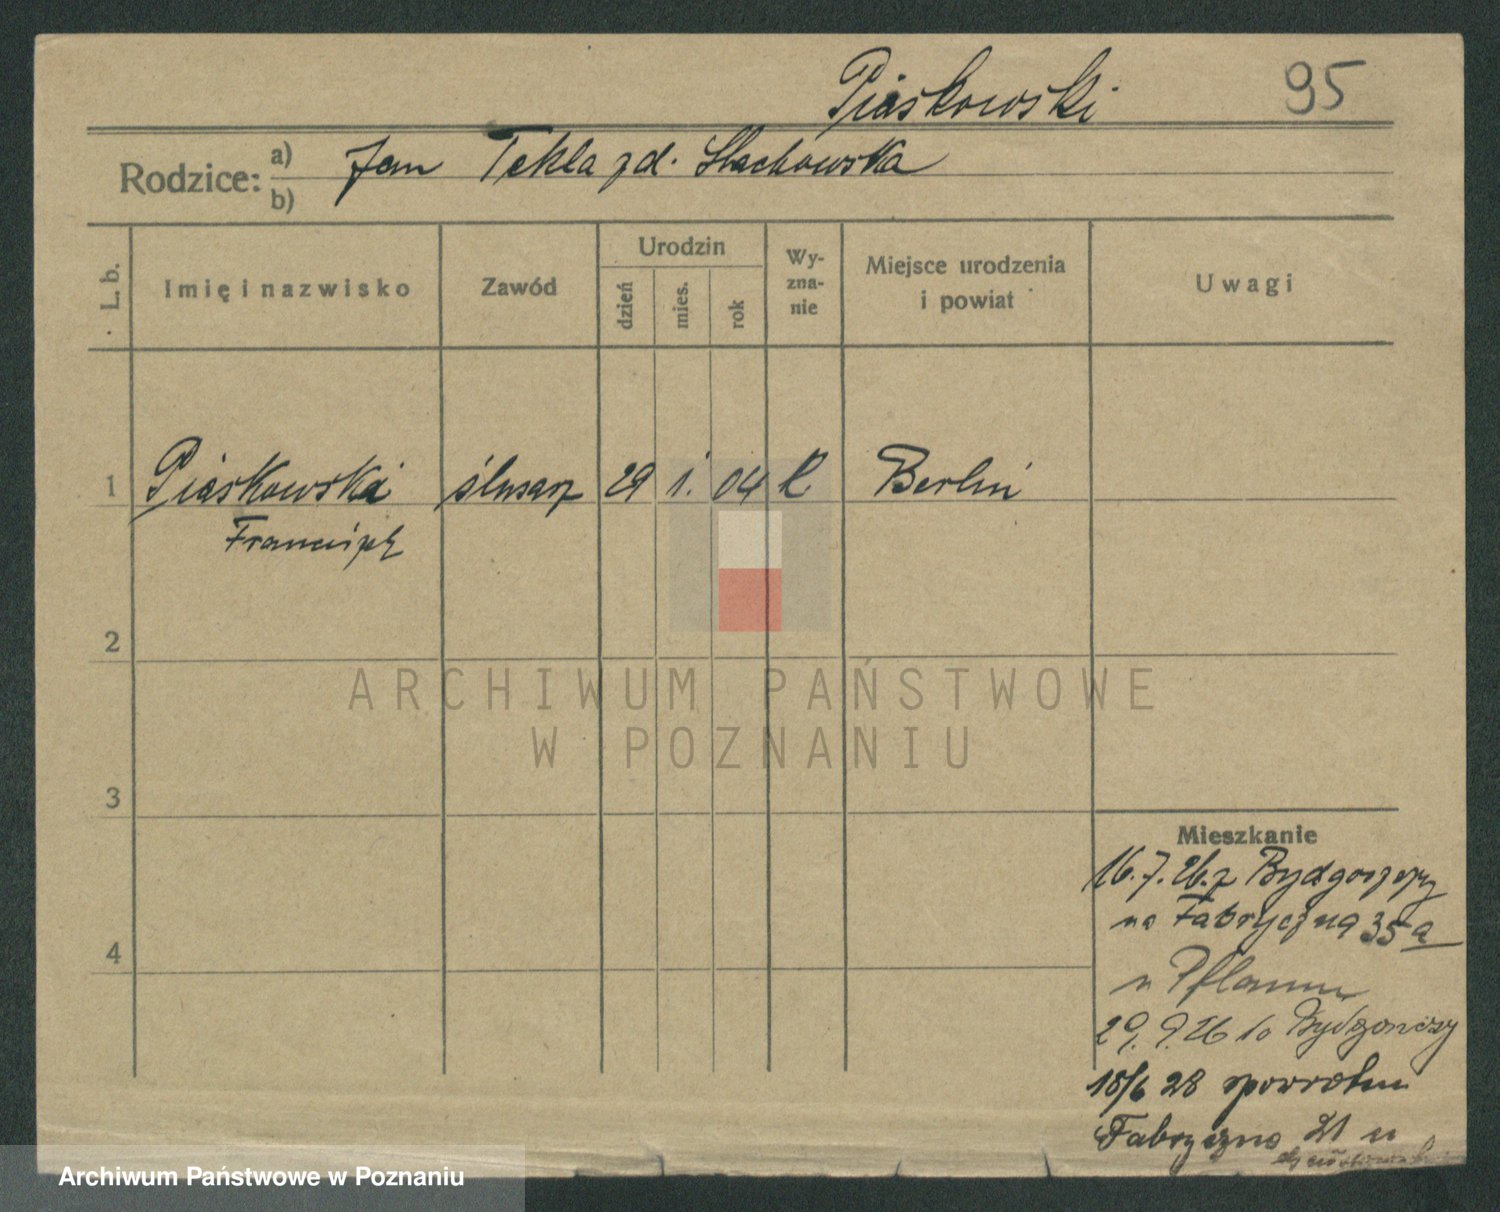 Piaskowski
95
Rodzice: a) b) Jan Tekla zd. Stachowska
L. b.
Imię i nazwisko
Zawód
Urodzin
dzień
mies.
rok
Wy-
zna-
nie
Miejsce urodzenia
i powiat
Uwagi
1 Piaskowski ślusarz 29 1. 04 k Berlin
Franciszek
2
3
4
Mieszkanie
16.7.26. z Bydgoszczy
na Fabryczna 35a
u Pflaum
29.9.26 do Bydgoszczy
18/6 28 spowrotem
Fabryczna 21 u
ARCHIWUM PAŃSTWOWE
W POZNANIU
Archiwum Państwowe w Poznaniu